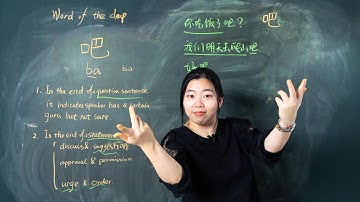 Word of the day
吧
ba
ba
1. In the end of a question sentence.
it indicates speaker has a certain
guess but not sure.
2. In the end of a statement
discuss & suggestion
approval & permission
urge & order
你吃饭了吧？
吧
我们明天去爬山吧